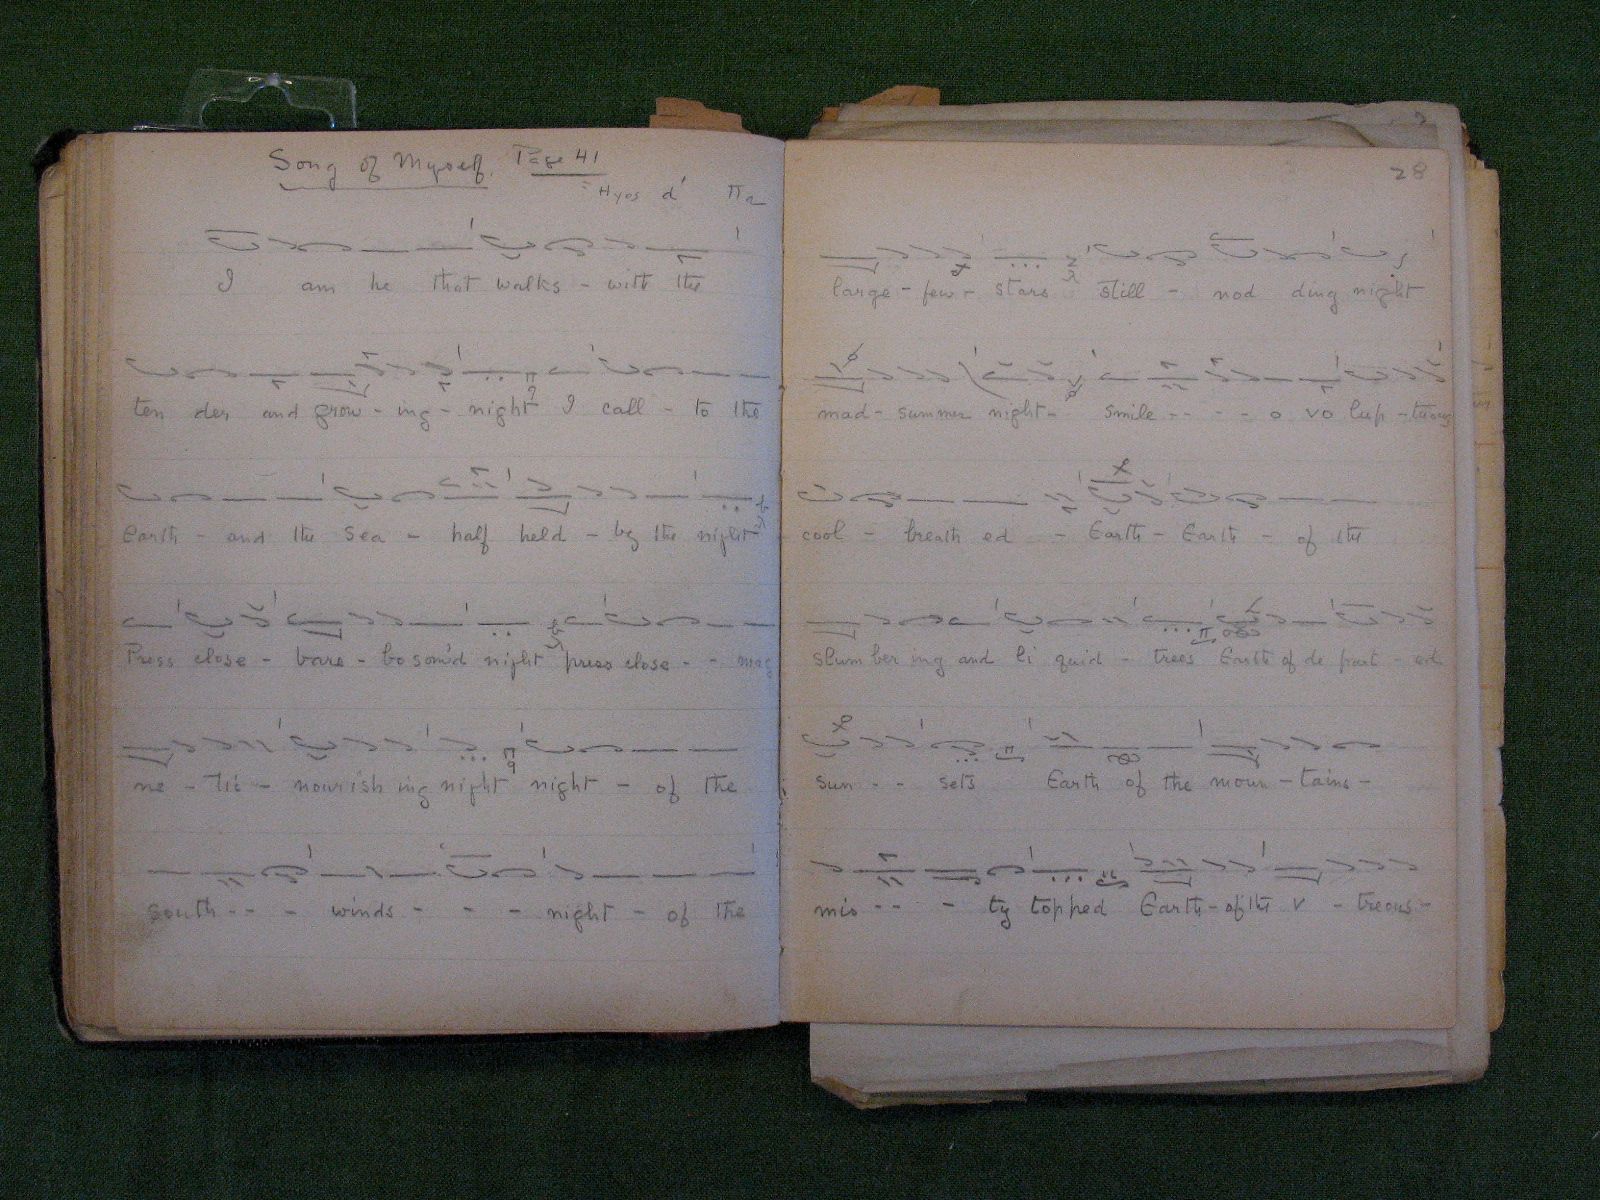 Song of Myself. Page 41
Hyos d' πa
I am he that walks - with the
ten der and grow - ing - night I call - to the
Earth - and the Sea - half held - by the night
Press close - bare - bosom'd night press close - - mag
ne - tic - nourish ing night night - of the
south - - - winds - - - night - of the
28
large - few - stars still - nod ding night
mad - summer night - smile - - - - o vo lup - tuous
cool - breath ed - Earth - Earth - of the
slum ber ing and li quid - trees Earth of de part - ed
sun - - sets Earth of the moun - tains -
mis - - - ty topped Earth - of the v - treous -